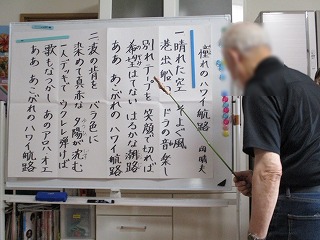 憧れのハワイ航路
岡 晴夫
一 晴れた空 そよぐ風
港出船の ドラの音楽し
別れテープを 笑顔で切れば
希望はてない はるかな潮路
ああ あこがれの ハワイ航路
二 波の背を バラ色に
染めて真赤な 夕陽が沈む
一人デッキで ウクレレ弾けば
歌もなつかし あのアロハオエ
ああ あこがれの ハワイ航路